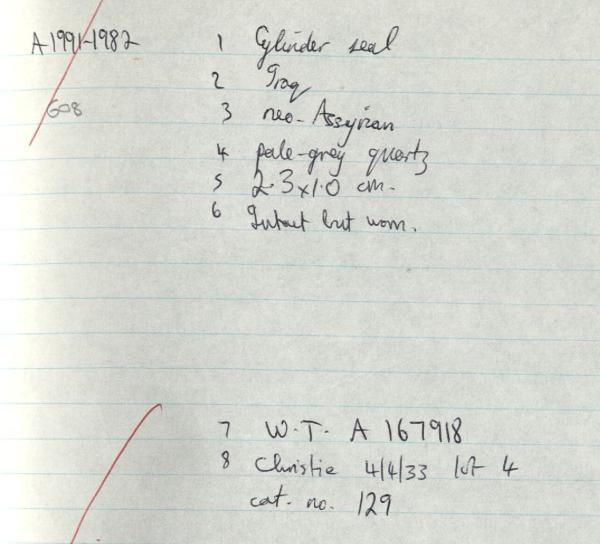 A1991-1982 1 Cylinder seal
2 Iraq
608 3 neo-Assyrian
4 pale-grey quartz
5 2.3 x 1.0 cm.
6 Intact but worn.
7 W.T. A 167918
8 Christie 4/4/33 lot 4
cat. no. 129